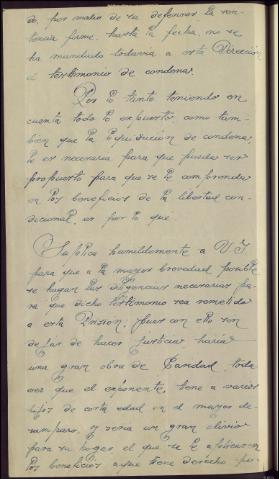 do, por medio de su defensor la sen-
tencia firme, hasta la fecha, no se
ha mandado todavia a esta Dirección
el testimonio de condena.
Por lo tanto teniendo en
cuenta todo lo expuesto como tam-
bien que la liquidación de condena,
le es necesaria para que pueda ser
propuesto para que se le comprenda
en los beneficios de la libertad con-
dicional, es por lo que
Suplica humildemente a V.I.
para que a la mayor brevedad posible
se hagan las diligencias necesarias pa-
ra que dicho testimonio sea remitido
a esta Prision, pues con ello son
dejar de hacer justicia, haria
una gran obra de Caridad, toda
vez que el exponente, tiene a varios
hijos de corta edad en el mayor de-
samparo, y seria un gran alivio
para su hogar el que se le aplicaran
los beneficios a que tiene derecho por